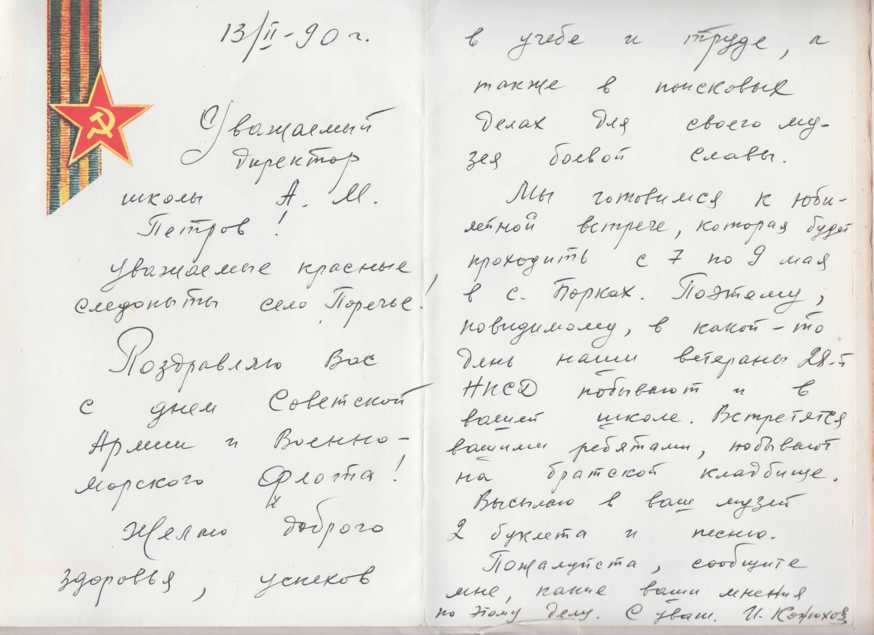 13/II-90 г.
Уважаемый
директор
школы А. М.
Петров!
Уважаемые красные
следопыты село Поречье!
Поздравляю Вас
с днем Советской
Армии и Военно-
морского Флота!
Желаю доброго
здоровья, успехов
в учебе и труде, а
также в поисковых
делах для своего му-
зея боевой славы.
Мы готовимся к юби-
лейной встрече, которая будет
проходить с 7 по 9 мая
в с. Борках. Поэтому,
повидимому, в какой-то
день наши ветераны 28-й
НКСД побывают и в
вашей школе. Встретятся
вашими ребятами, побывают
на братской кладбище.
Высылаю в ваш музей
2 буклета и песню.
Пожалуйста, сообщите
мне, какие ваши мнения
по этому делу. С уваж. И. Конюхов